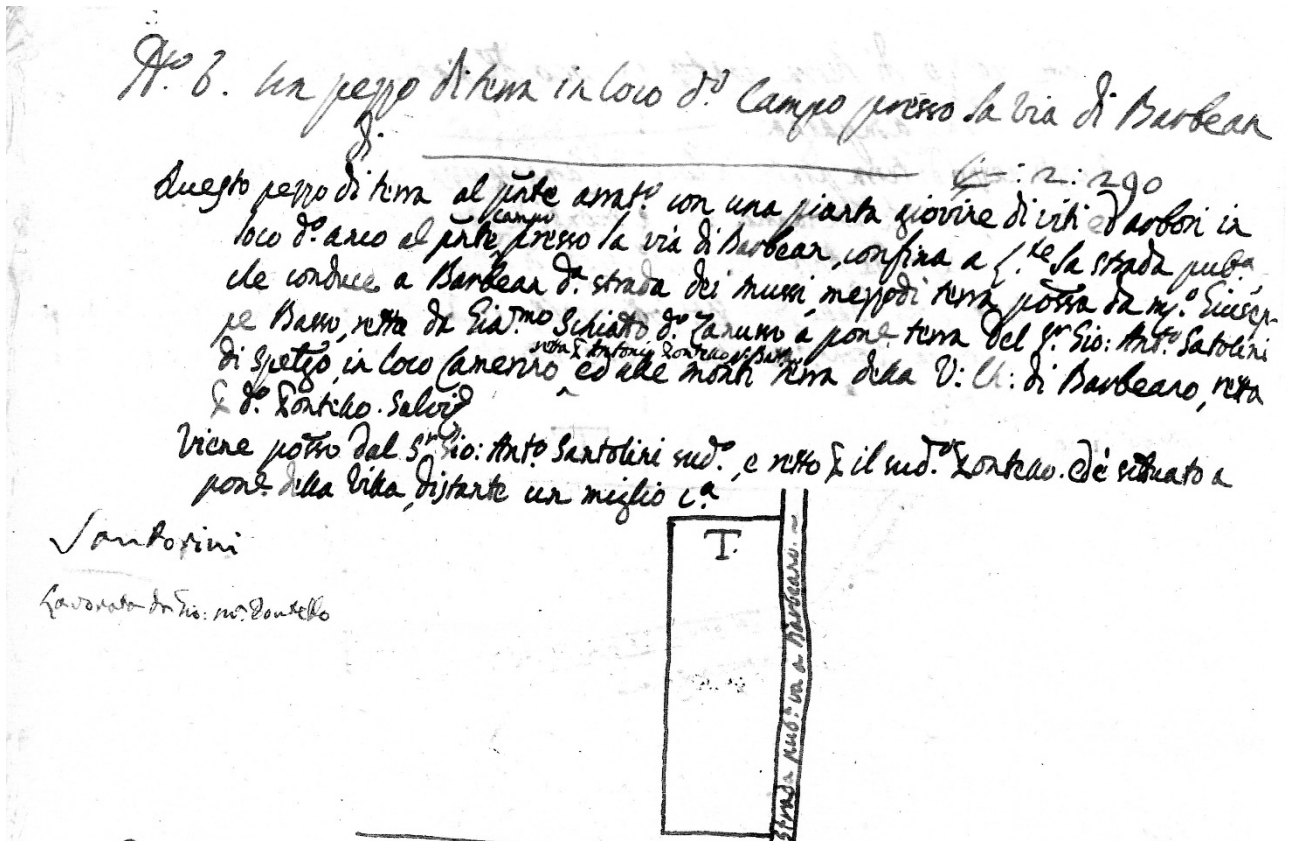 N.º 6. Un pezzo di terra in loco d.º Campo presso la via di Barbean
di
C–: 2: 290
Questo pezzo di terra al pñte arat.º con una pianta giovine di viti e d'arbori in
loco d.º anco al pñte campo presso la via di Barbean, confina a l.te la strada pub.a
che conduce a Barbean d.a strada dei mussi, mezzodi terra possa da m.º Giusep-
pe Basso, retta da Gia.mo Schiatto d.º Zanusso a pon.e terra del S.r Gio: Ant.º Satolini
di Spelgo, in loco Camerino retta Antonio ed alle monti terra della V: Ch: di Barbeano, retta
d.º Zontello. Salvis
Viene posso dal S.r Gio: Ant.º Santolini sud.º, e retto il sud.º Zontello. ed è situato a
pon.e della Villa, distante un miglio c.a
T.
Santorini
Lavorata da Gio: m. Zontello
Strada pub.a va a Barbeano.